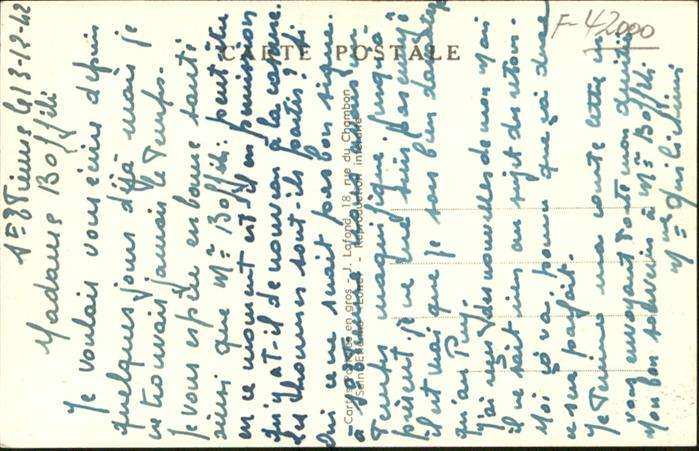 St Etienne le 13-12-42
Madame Boffili
Je voulais vous écrire depuis
quelques jours déjà mais je
ne trouvait jamais le temps.
Je vous espère en bonne santé
ainsi que Mr Boffili: peut-être
en ce moment est-il en permission
qu'y at-il de nouveau à la caserne.
Les hommes sont-ils partis? Si
oui ce ne serait pas bon signe.
à St Etienne
temps magnifique jusqu'à
présent je ne suis pas
il est vrai que je sors bien davantage
qu'au Puy.
J'ai reçu des nouvelles de mon mari
il ne sait rien au sujet du retour.
Moi ça va, pourvu que ça dure
ce sera parfait.
Je termine ma courte lettre en
vous envoyant toute mon amitié
Mon bon souvenir à Mr Boffili
Mme
F-42000
CARTE POSTALE
Cartes postales en gros - J. Lafond, 18, rue du Chambon
Saint-Etienne - Loire - Reproduction interdite